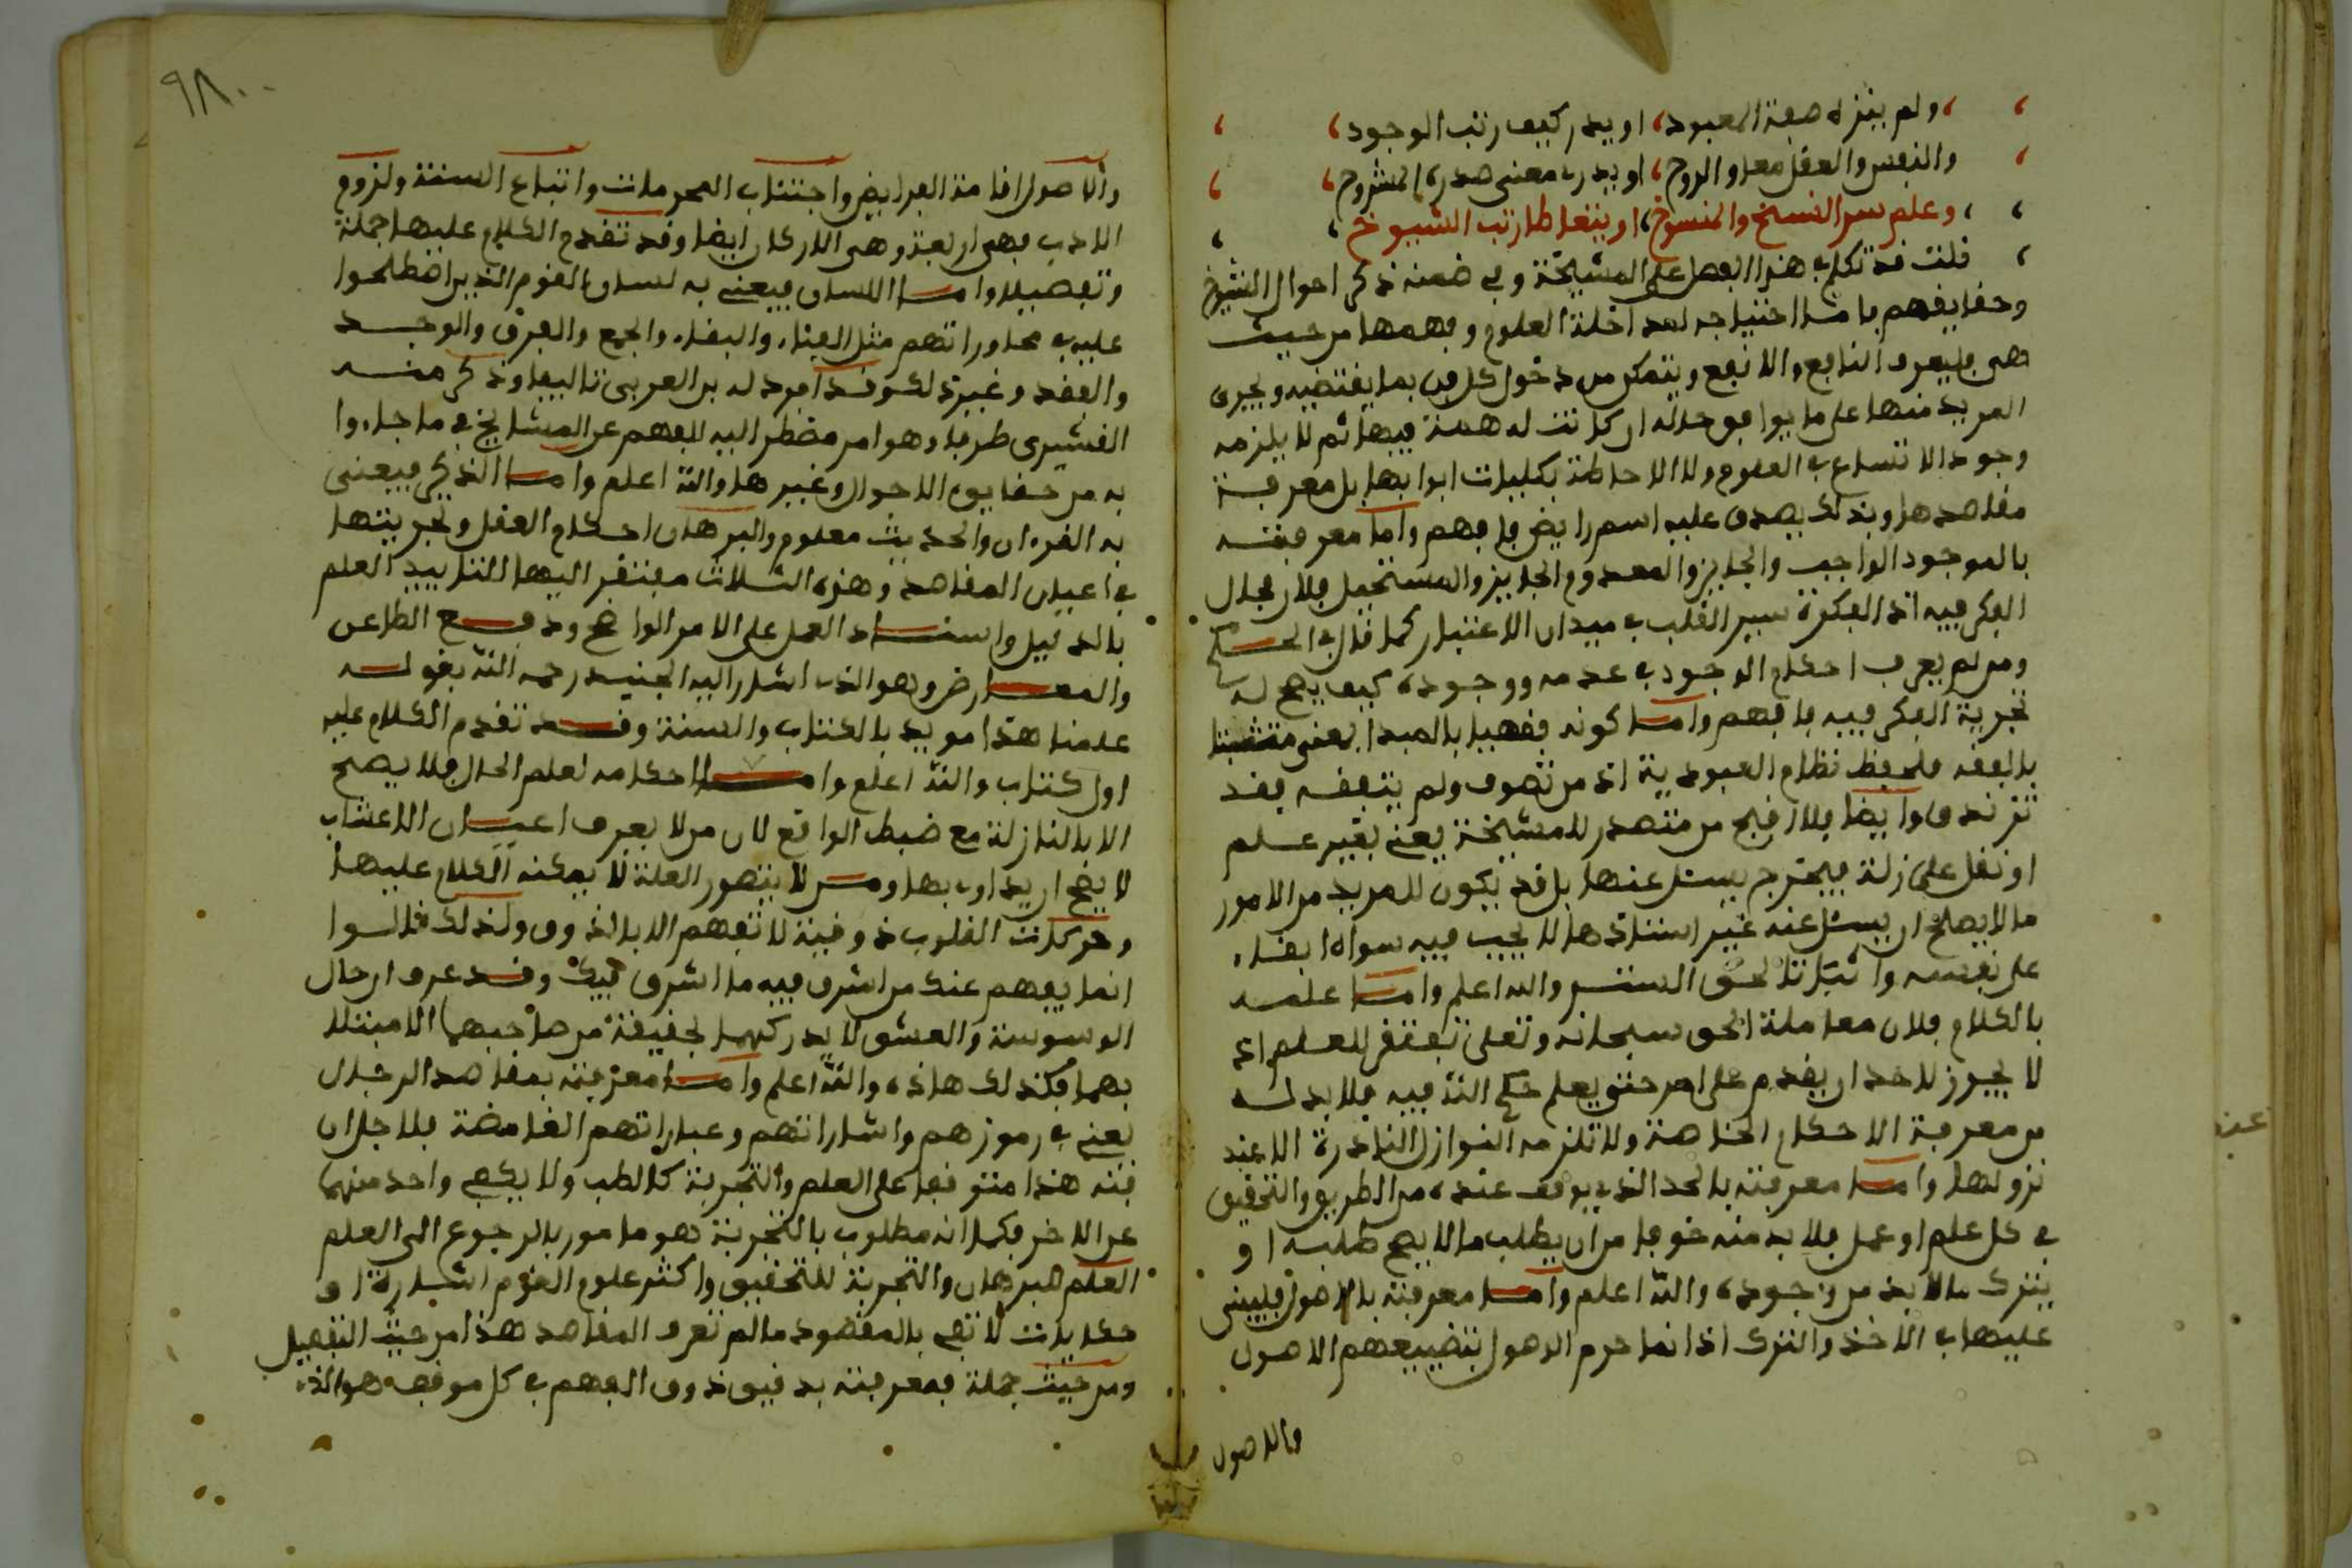 ولم ينزه صفة المعبود، او يدر كيف رتب الوجود
والنفس والعقل معا والروح، او يدر معنى صدره المشروح
وعلم سر النسخ والمنسوخ، او يتعاطا رتب الشيوخ
قلت قد تكلم في هذا الفصل على المشيخة وفي ضمنه ذكر احوال الشيوخ
وحقايقهم فاما احتياجه لمداخلة العلوم وفهمها من حيث
هي فليعرف النافع والانفع ويتمكن من دخول كل فن بما يقتضيه ويجري
المريد منها على ما يوافق حاله ان كانت له همة فيها ثم لا يلزمه
وجود الاتساع في العلوم ولا الاحاطة بكليات ابوابها بل معرفة
مقاصدها وبذلك يصدق عليه اسم رايض فافهم واما معرفته
بالموجود الواجب والجايز والمعدوم الجايز والمستحيل فلان مجال
الفكر فيه اذ الفكرة سير القلب في ميدان الاعتبار كما قال في الحكم
ومن لم يعرف احكام الوجود في عدمه ووجوده كيف يصح له
تجربة الفكر فيه فافهم واما كونه فقهيا بالمبدا يعني متشبثا
بالفقه فلحفظ نظام العبودية اذ من تصوف ولم يتفقه فقد
تزندق وايضا فلا اقبح من متصدر للمشيخة يعني بغير علم
او نقل على زلة فيحترم يسئل عنها بل قد يكون للمريد من الامور
ما لا يصلح ان يسئل عنه غير استاذها لا يجب فيه سواه ابقاء
على نفسه وا لحق الستر والله اعلم واما علمه
بالكلام فلان معاملة الحق سبحانه وتعلى تفتقر للعلم اذ
لا يجوز لاحد ان يقدم على امر حتى يعلم حكم الله فيه فلا بد له
من معرفة الاحكام الخاصة ولا تلزمه النوازل النادرة الا عند
نزولها واما معرفته بالحد الذي يوقف عنده من الطريق والتحقيق
في كل علم او عمل فلا بد منه خوفا من ان يطلب ما لا يصح طلبه او
يترك ما لا بد من وجوده والله اعلم واما معرفته بالاصول فليبني
عليها في الاخذ والترك اذ انما حرم الوصول بتضييعهم الاصول
والاصول
عنه
٩٨
والاصول اقامة الفرايض واجتناب المحرمات واتباع السنة ولزوم
الادب فهي اربعة وهي الاركان ايضا وقد تقدم الكلام عليها جملة
وتفصيلا واما اللسان فيعني به لسان القوم الذين اصطلحوا
عليه في محاوراتهم مثل الفناء والبقاء والجمع والفرق والوجد
والفقد وغير ذلك وقد افرد له بن العربي تاليفا وذكر منه
القشيري طرفا وهو امر مضطر اليه للفهم عن المشايخ في ما جاءوا
به من حقايق الاحوال وغيرها والله اعلم واما الذكر فيعني
به القرءان والحديث معلوم والبرهان احكام العقل وتجريبتها
في اعيان المقاصد وهذه الثلاث مفتقر اليها لتاييد العلم
بالدليل واسناد العمل على الامر الواضح ودفع الطاعن
والمعارض وهو الذي اشار اليه الجنيد رحمه الله بقوله
علمنا هذا مويد بالكتاب والسنة وقد تقدم الكلام عليه
اول كتاب والله اعلم واما احكامه لعلم الحال فلا يصح
الا بالنازلة مع ضبط الواقع لان من لا يعرف اعيان الاعشاب
لا يصح ان يداوي بها ومن لا يتصور العلة لا يمكنه الكلام عليها
وحركات القلوب ذوقية لا تفهم الا بالذوق ولذلك قالوا
انما يفهم عنك من اشرق فيه ما اشرق فيك وقد عرف ان حال
الوسوسة والعشق لا يدركهما لحقيقة من صاحبهما الا مبتلا
بهما فكذلك هاذه والله اعلم واما معرفته بمقاصد الرجال
يعني في رموزهم واشاراتهم وعباراتهم الغامضة فلاجل ان
فنه هذا متوقفا على العلم والتجربة كالطب ولا يكفي واحد منهما
عن الاخر فكما انه مطلوب بالتجربة هو مامور بالرجوع الى العلم
العلم للبرهان والتجربة للتحقيق واكثر علوم القوم اشارة او
حكايات لا تفي بالمقصود ما لم تعرف المقاصد هذا من حيث التفصيل
ومن حيث جملة فمعرفته بدقيق ذوق الفهم في كل موقف هو الذي